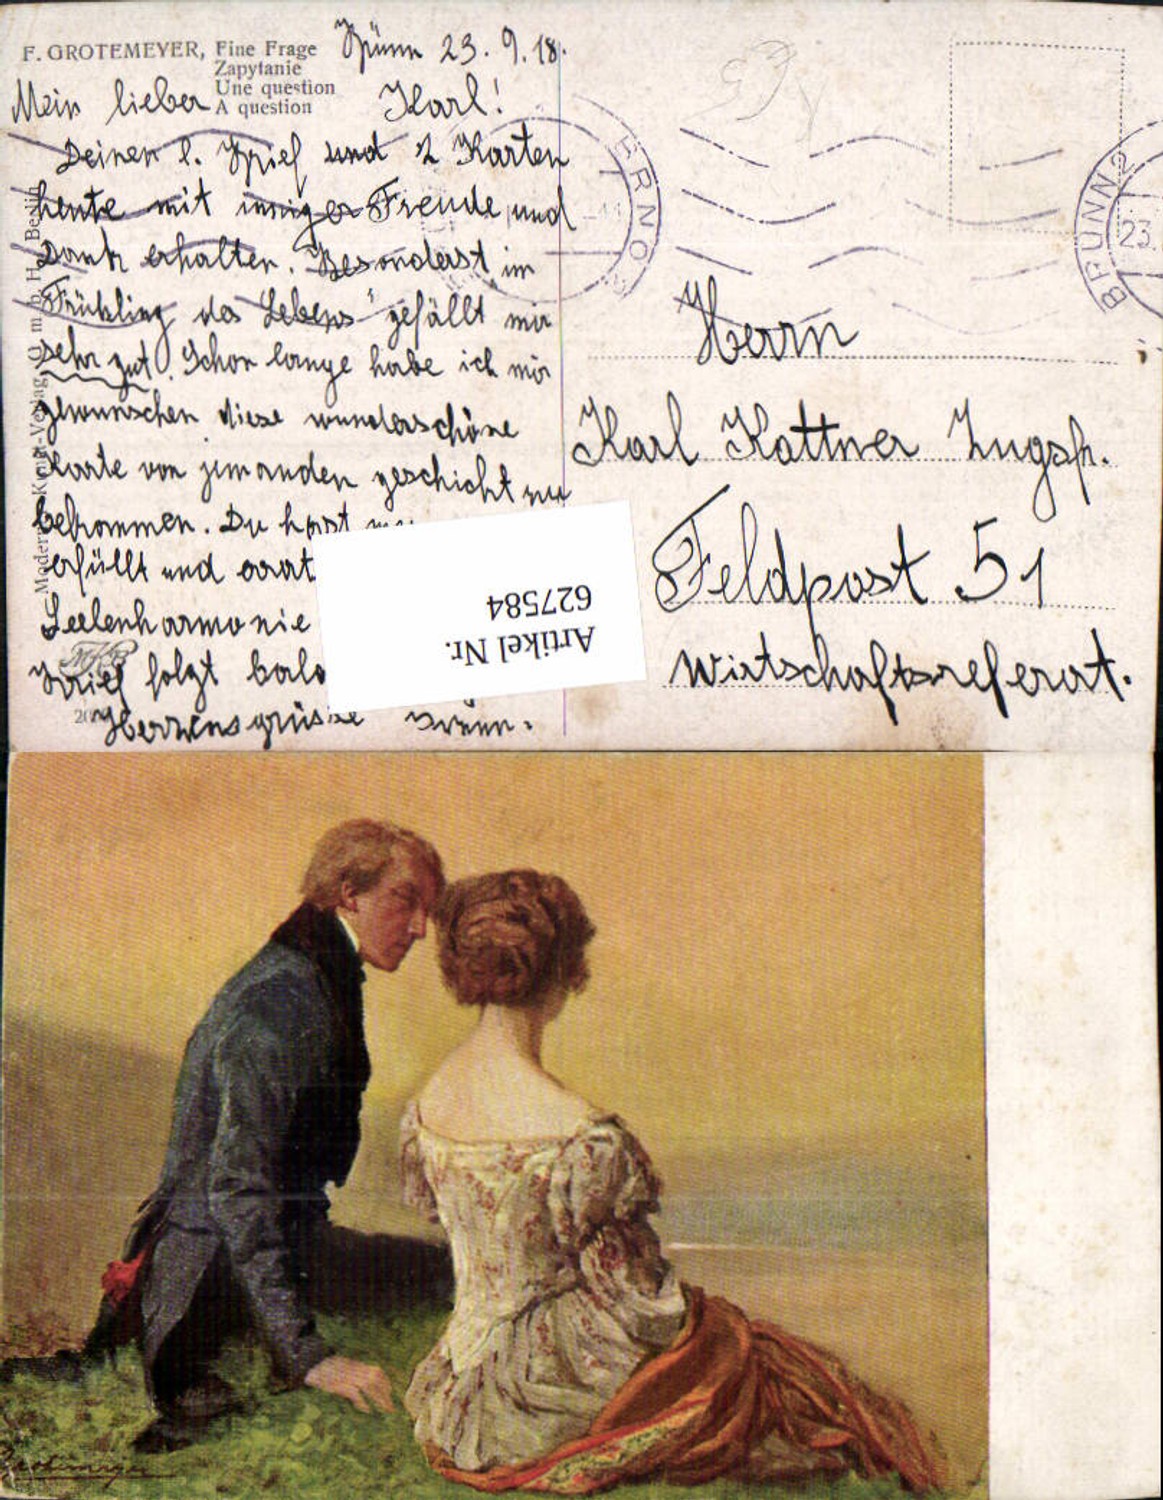 F. GROTEMEYER, Eine Frage
Zapytanie
Une question
A question
Brünn 23.9.18.
Mein lieber Karl!
Deinen l. Brief und 2 Karten
heute mit inniger Freude und
Dank erhalten. Besonders im
Frühling des Lebens" gefällt mir
sehr gut. Schon lange habe ich mir
gewunschen diese wunderschöne
Karte von jemanden geschickt zu
bekommen. Du hast
erfüllt und
Seelenharmonie
Brief folgt bald
Herzensgrüsse
Moderner Kunst-Verlag, G. m. b. H., Berlin
MKB
BRNO 2
BRÜNN 2
23.
Herrn
Karl Kattner Zugsf.
Feldpost 51
Wirtschaftsreferat.
Artikel Nr.
627584
Grotemeyer